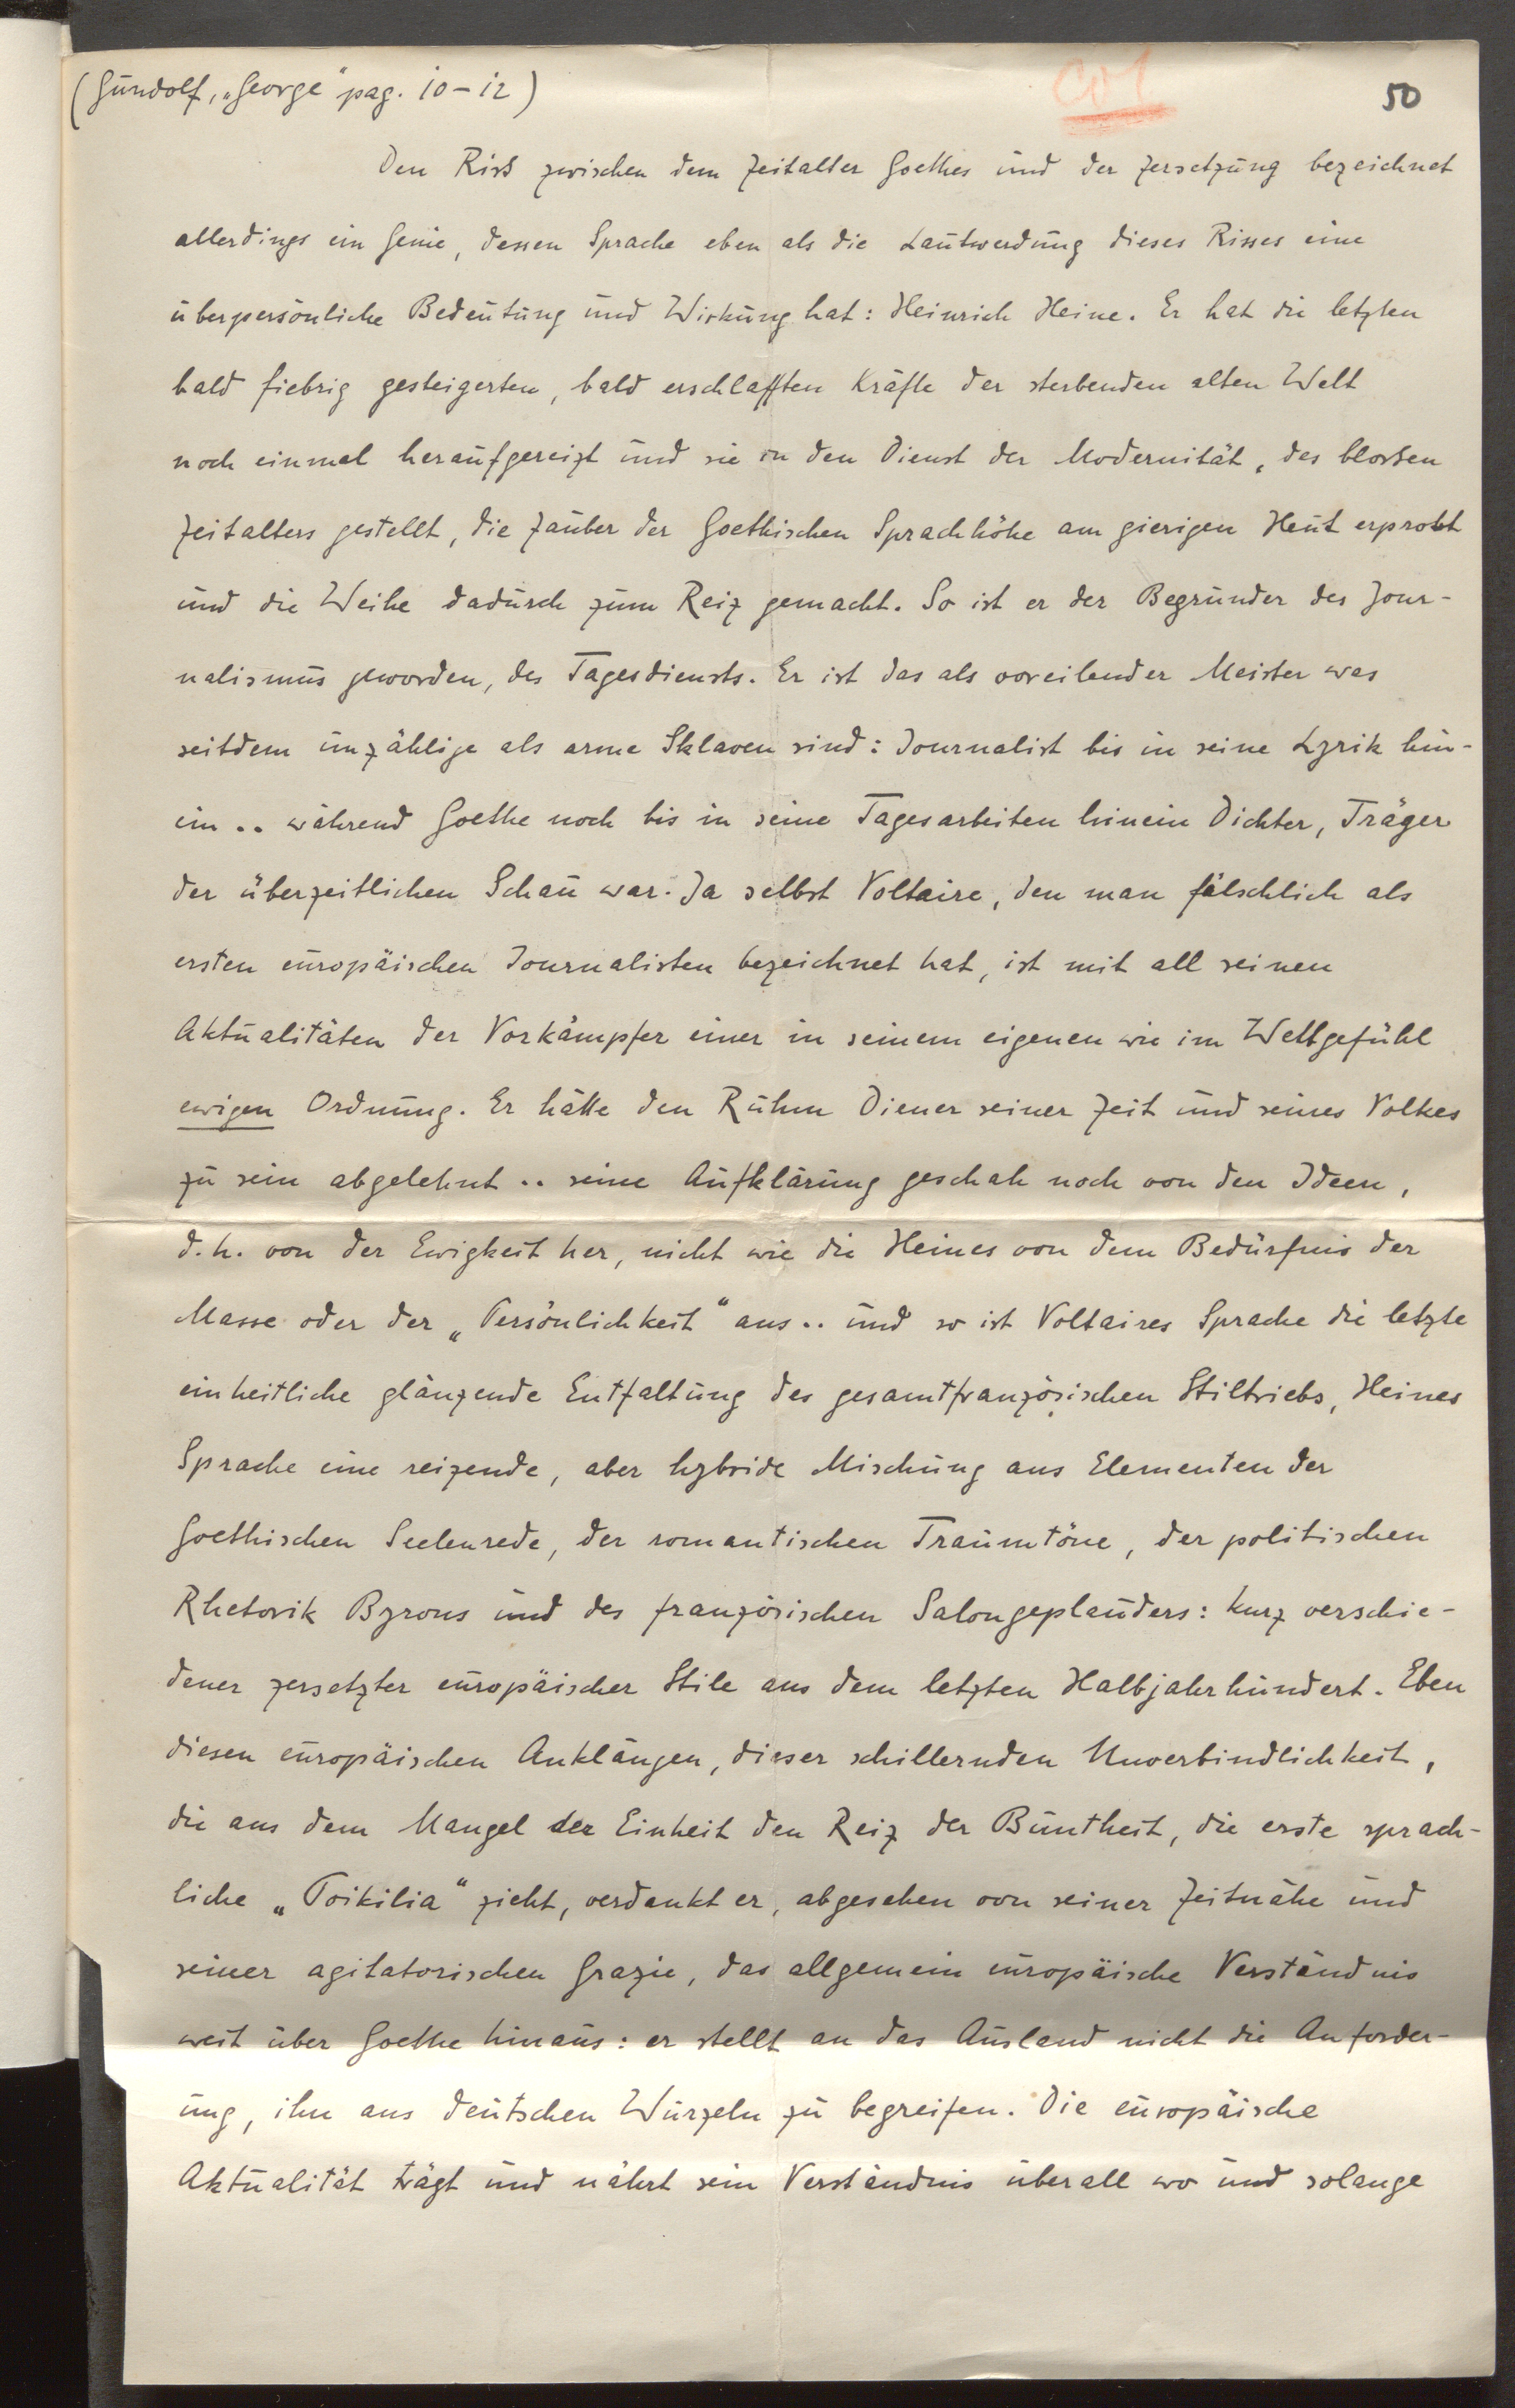 (Gundolf, „George" pag. 10-12)
50
Den Riß zwischen dem Zeitalter Goethes und der Zersetzung bezeichnet
allerdings ein Genie, dessen Sprache eben als die Lautwerdung dieses Risses eine
überpersönliche Bedeutung und Wirkung hat: Heinrich Heine. Er hat die letzten
bald fiebrig gesteigerten, bald erschlafften Kräfte der sterbenden alten Welt
noch einmal heraufgereizt und sie in den Dienst der Modernität, des bloßen
Zeitalters gestellt, die Zauber der Goethischen Sprachhöhe am gierigen Heut erprobt
und die Weihe dadurch zum Reiz gemacht. So ist er der Begründer des Jour-
nalismus geworden, des Tagesdiensts. Er ist das als voreilender Meister was
seitdem unzählige als arme Sklaven sind: Journalist bis in seine Lyrik hin-
ein .. während Goethe noch bis in seine Tagesarbeiten hinein Dichter, Träger
der überzeitlichen Schau war. Ja selbst Voltaire, den man fälschlich als
ersten europäischen Journalisten bezeichnet hat, ist mit all seinen
Aktualitäten der Vorkämpfer einer in seinem eigenen wie im Weltgefühl
ewigen Ordnung. Er hätte den Ruhm Diener seiner Zeit und seines Volkes
zu sein abgelehnt .. seine Aufklärung geschah noch von den Ideen,
d.h. von der Ewigkeit her, nicht wie die Heines von dem Bedürfnis der
Masse oder der „Persönlichkeit" aus .. und so ist Voltaires Sprache die letzte
einheitliche glänzende Entfaltung des gesamtfranzösischen Stiltriebs, Heines
Sprache eine reizende, aber hybride Mischung aus Elementen der
Goethischen Seelenrede, der romantischen Traumtöne, der politischen
Rhetorik Byrons und des französischen Salongeplauders: kurz verschie-
dener zersetzter europäischer Stile aus dem letzten Halbjahrhundert. Eben
diesen europäischen Anklängen, dieser schillernden Unverbindlichkeit,
die aus dem Mangel der Einheit den Reiz der Buntheit, die erste sprach-
liche „Poikilia" zieht, verdankt er, abgesehen von seiner Zeitnähe und
seiner agitatorischen Grazie, das allgemein europäische Verständnis
weit über Goethe hinaus: er stellt an das Ausland nicht die Anforder-
ung, ihn aus deutschen Wurzeln zu begreifen. Die europäische
Aktualität trägt und nährt sein Verständnis überall wo und solange